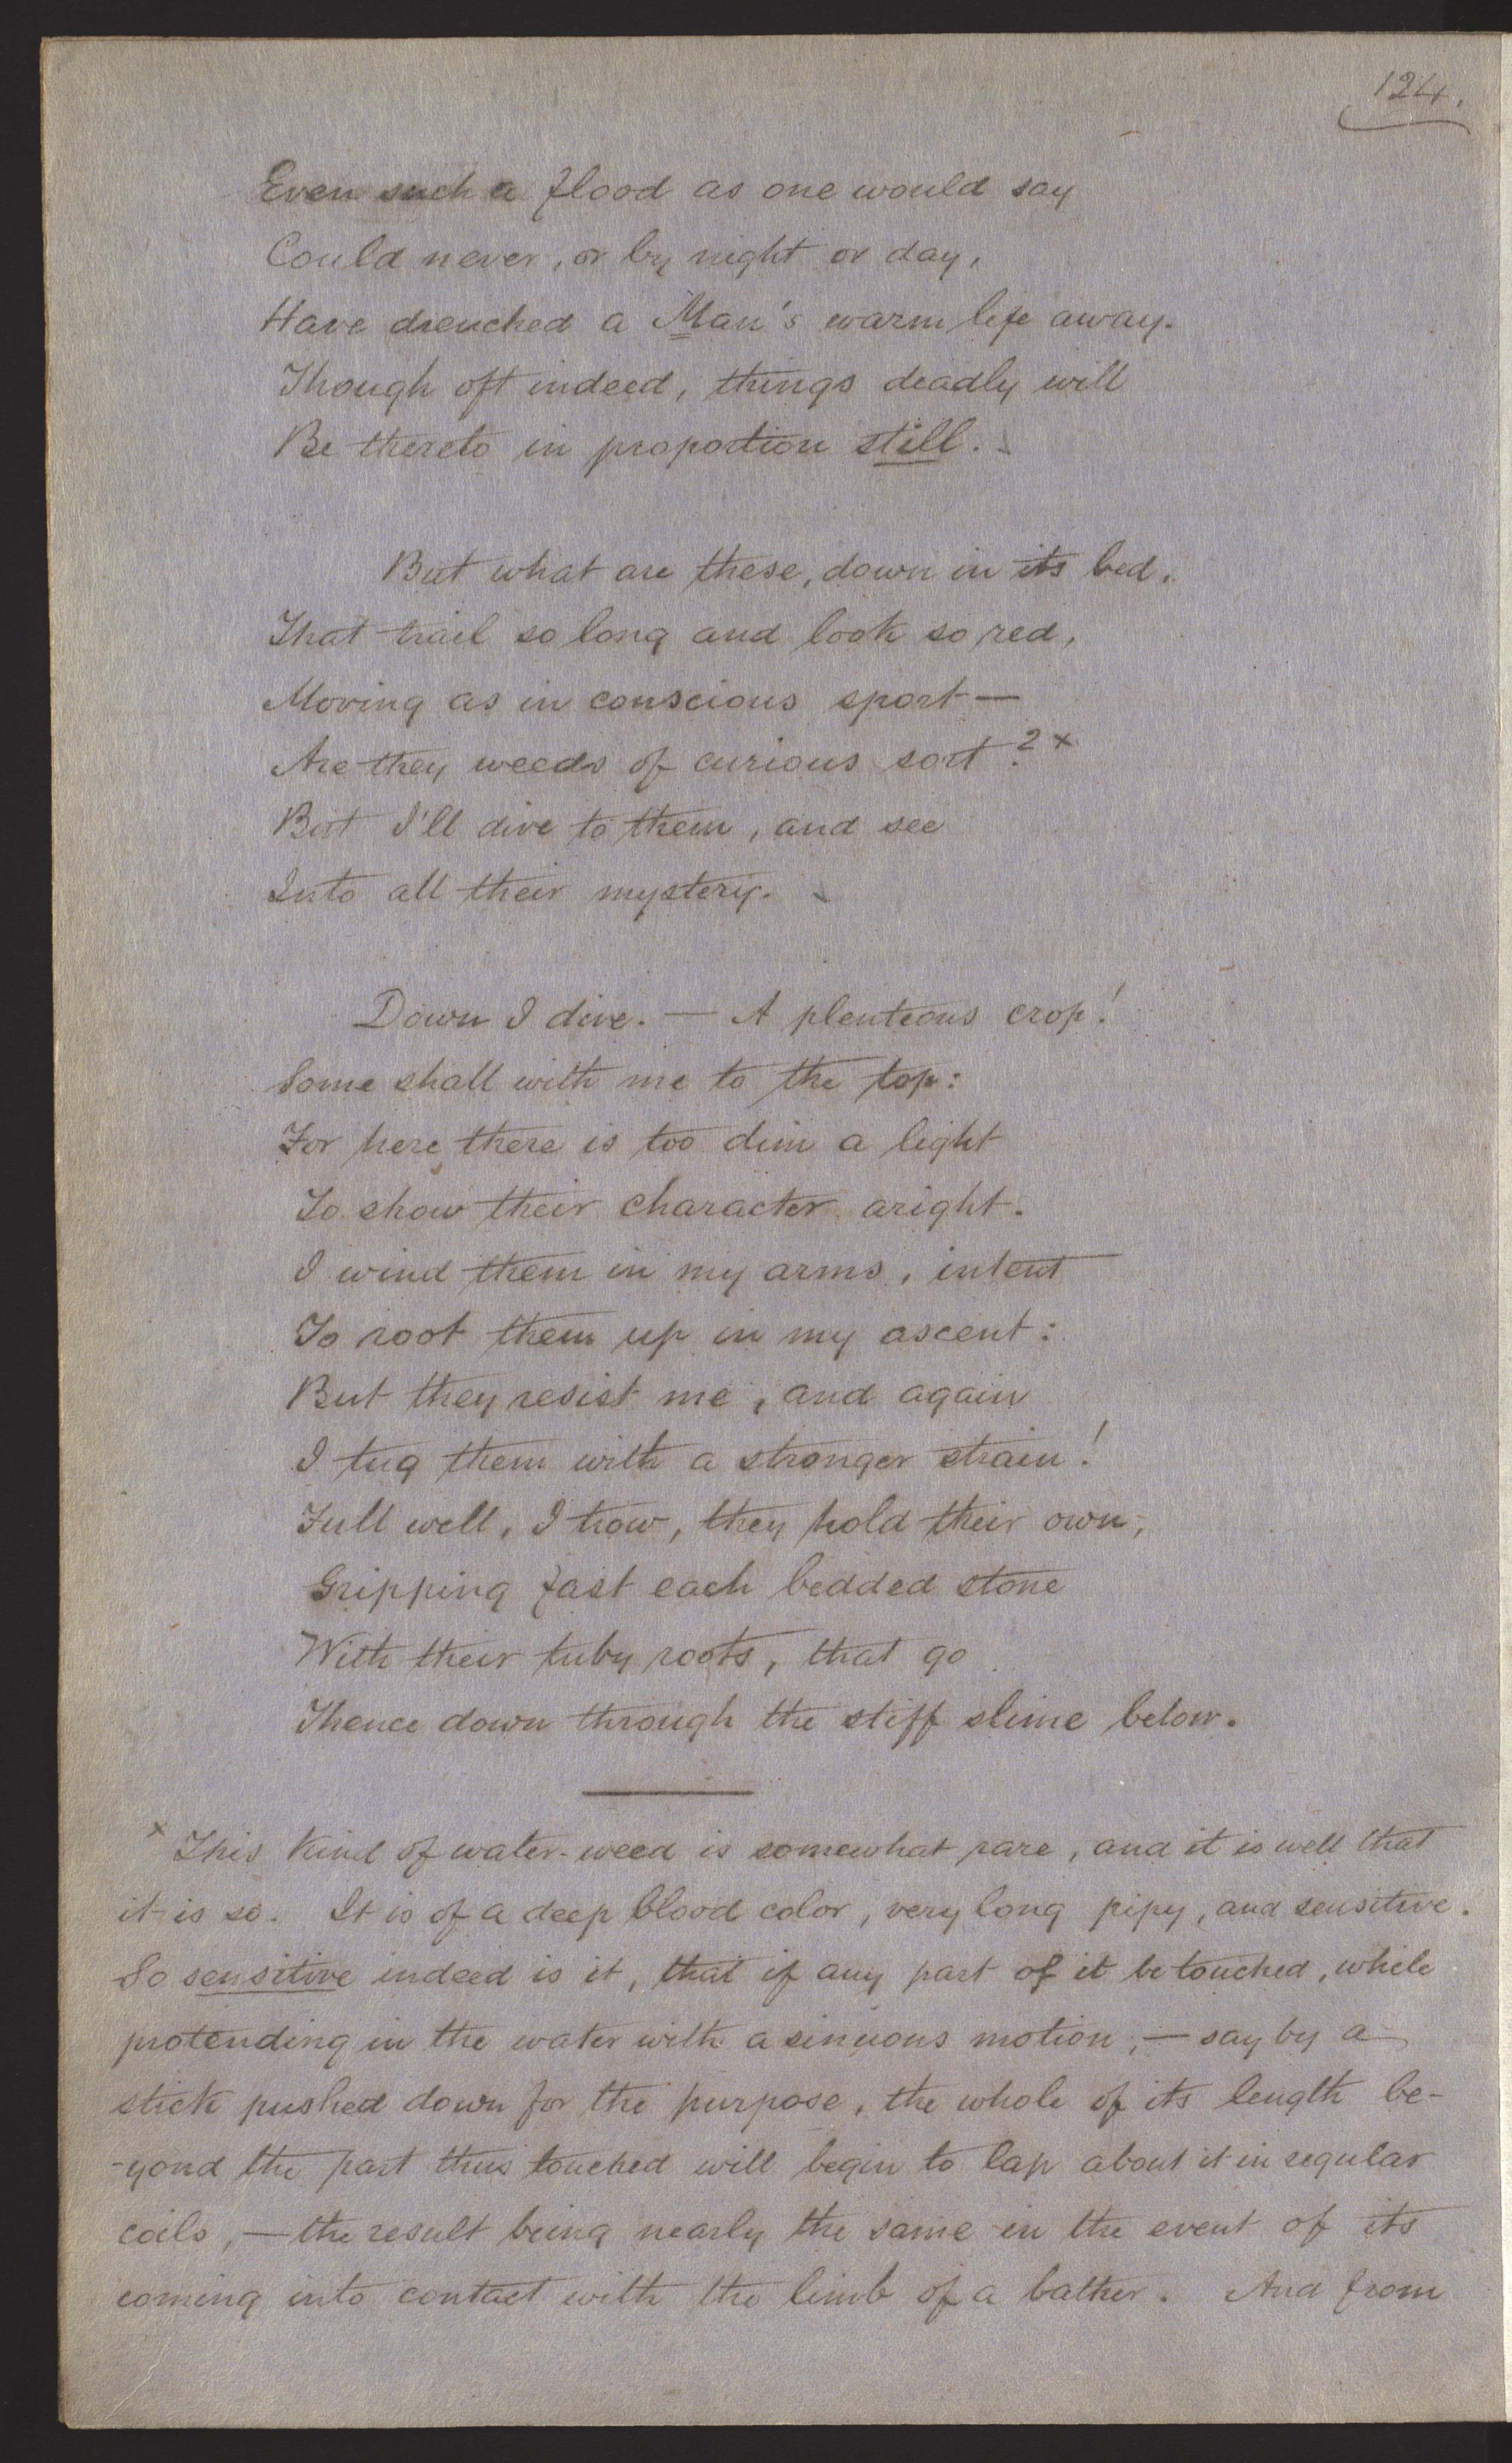 124.
Even such a flood as one would say
Could never, or by night or day,
Have drenched a Man's warm life away.
Though oft indeed, things deadly will
Be thereto in proportion still.
But what are these, down in its bed,
That trail so long and look so red,
Moving as in conscious sport—
Are they weeds of curious sort?x
But I'll dive to them, and see
Into all their mystery.
Down I dive. — A plenteous crop!
Some shall with me to the top:
For here there is too dim a light
To show their character aright.
I wind them in my arms, intent
To root them up in my ascent:
But they resist me, and again
I tug them with a stronger strain!
Full well, I trow, they hold their own,
Gripping fast each bedded stone
With their tuby roots, that go
Thence down through the stiff slime below.
x This kind of water-weed is somewhat rare, and it is well that
it is so. It is of a deep blood color, very long pipy, and sensitive.
So sensitive indeed is it, that if any part of it be touched, while
protending in the water with a sinuous motion, — say by a
stick pushed down for the purpose, the whole of its length be-
-yond the part thus touched will begin to lap about it in regular
coils, — the result being nearly the same in the event of its
coming into contact with the limb of a bather. And from